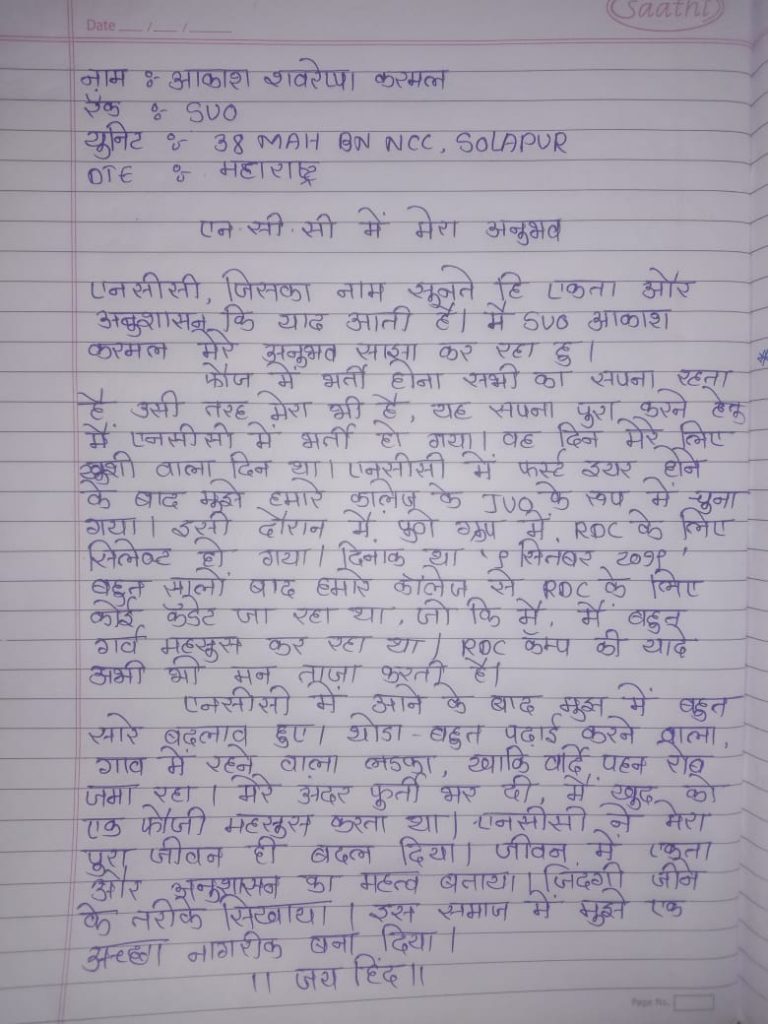 Saathi
Date
नाम :- आकाश शवरेप्पा करमल
रँक :- SUO
युनिट :- 38 MAH BN NCC, SOLAPUR
DTE :- महाराष्ट्र
एन.सी.सी में मेरा अनुभव
एनसीसी, जिसका नाम सूनते हि एकता और
अनुशासन कि याद आती है। मै SUO आकाश
करमल मेरे अनुभव साझा कर रहा हु।
फौज में भर्ती होना सभी का सपना रहता
है उसी तरह मेरा भी है, यह सपना पुरा करने हेतु
मैं एनसीसी में भर्ती हो गया। वह दिन मेरे लिए
खुशी वाला दिन था। एनसीसी में फर्स्ट इयर होने
के बाद मुझे हमारे कॉलेज के JUO के रूप में चूना
गया। इसी दौरान मैं पुणे ग्रुप में RDC के लिए
सिलेक्ट हो गया। दिनाक था '१ सितबर २०१९'
बहुत सालों बाद हमारे कॉलेज से RDC के लिए
कोई कॅडेट जा रहा था, जो कि मै, मैं बहुत
गर्व महसुस कर रहा था। RDC कॅम्प की यादे
अभी भी मन ताजा करती है।
एनसीसी में आने के बाद मुझ में बहुत
सारे बदलाव हुए। थोडा-बहुत पढ़ाई करने वाला,
गाव में रहने वाला लडका, खाकि वर्दि पहन रोब
जमा रहा। मेरे अंदर फुर्ती भर दी, मैं खुद को
एक फौजी महसुस करता था। एनसीसी ने मेरा
पुरा जीवन ही बदल दिया। जीवन में एकता
और अनुशासन का महत्व बताया। जिंदगी जीने
के तरीके सिखाया। इस समाज में मुझे एक
अच्छा नागरीक बना दिया।
॥ जय हिंद॥
Page No.